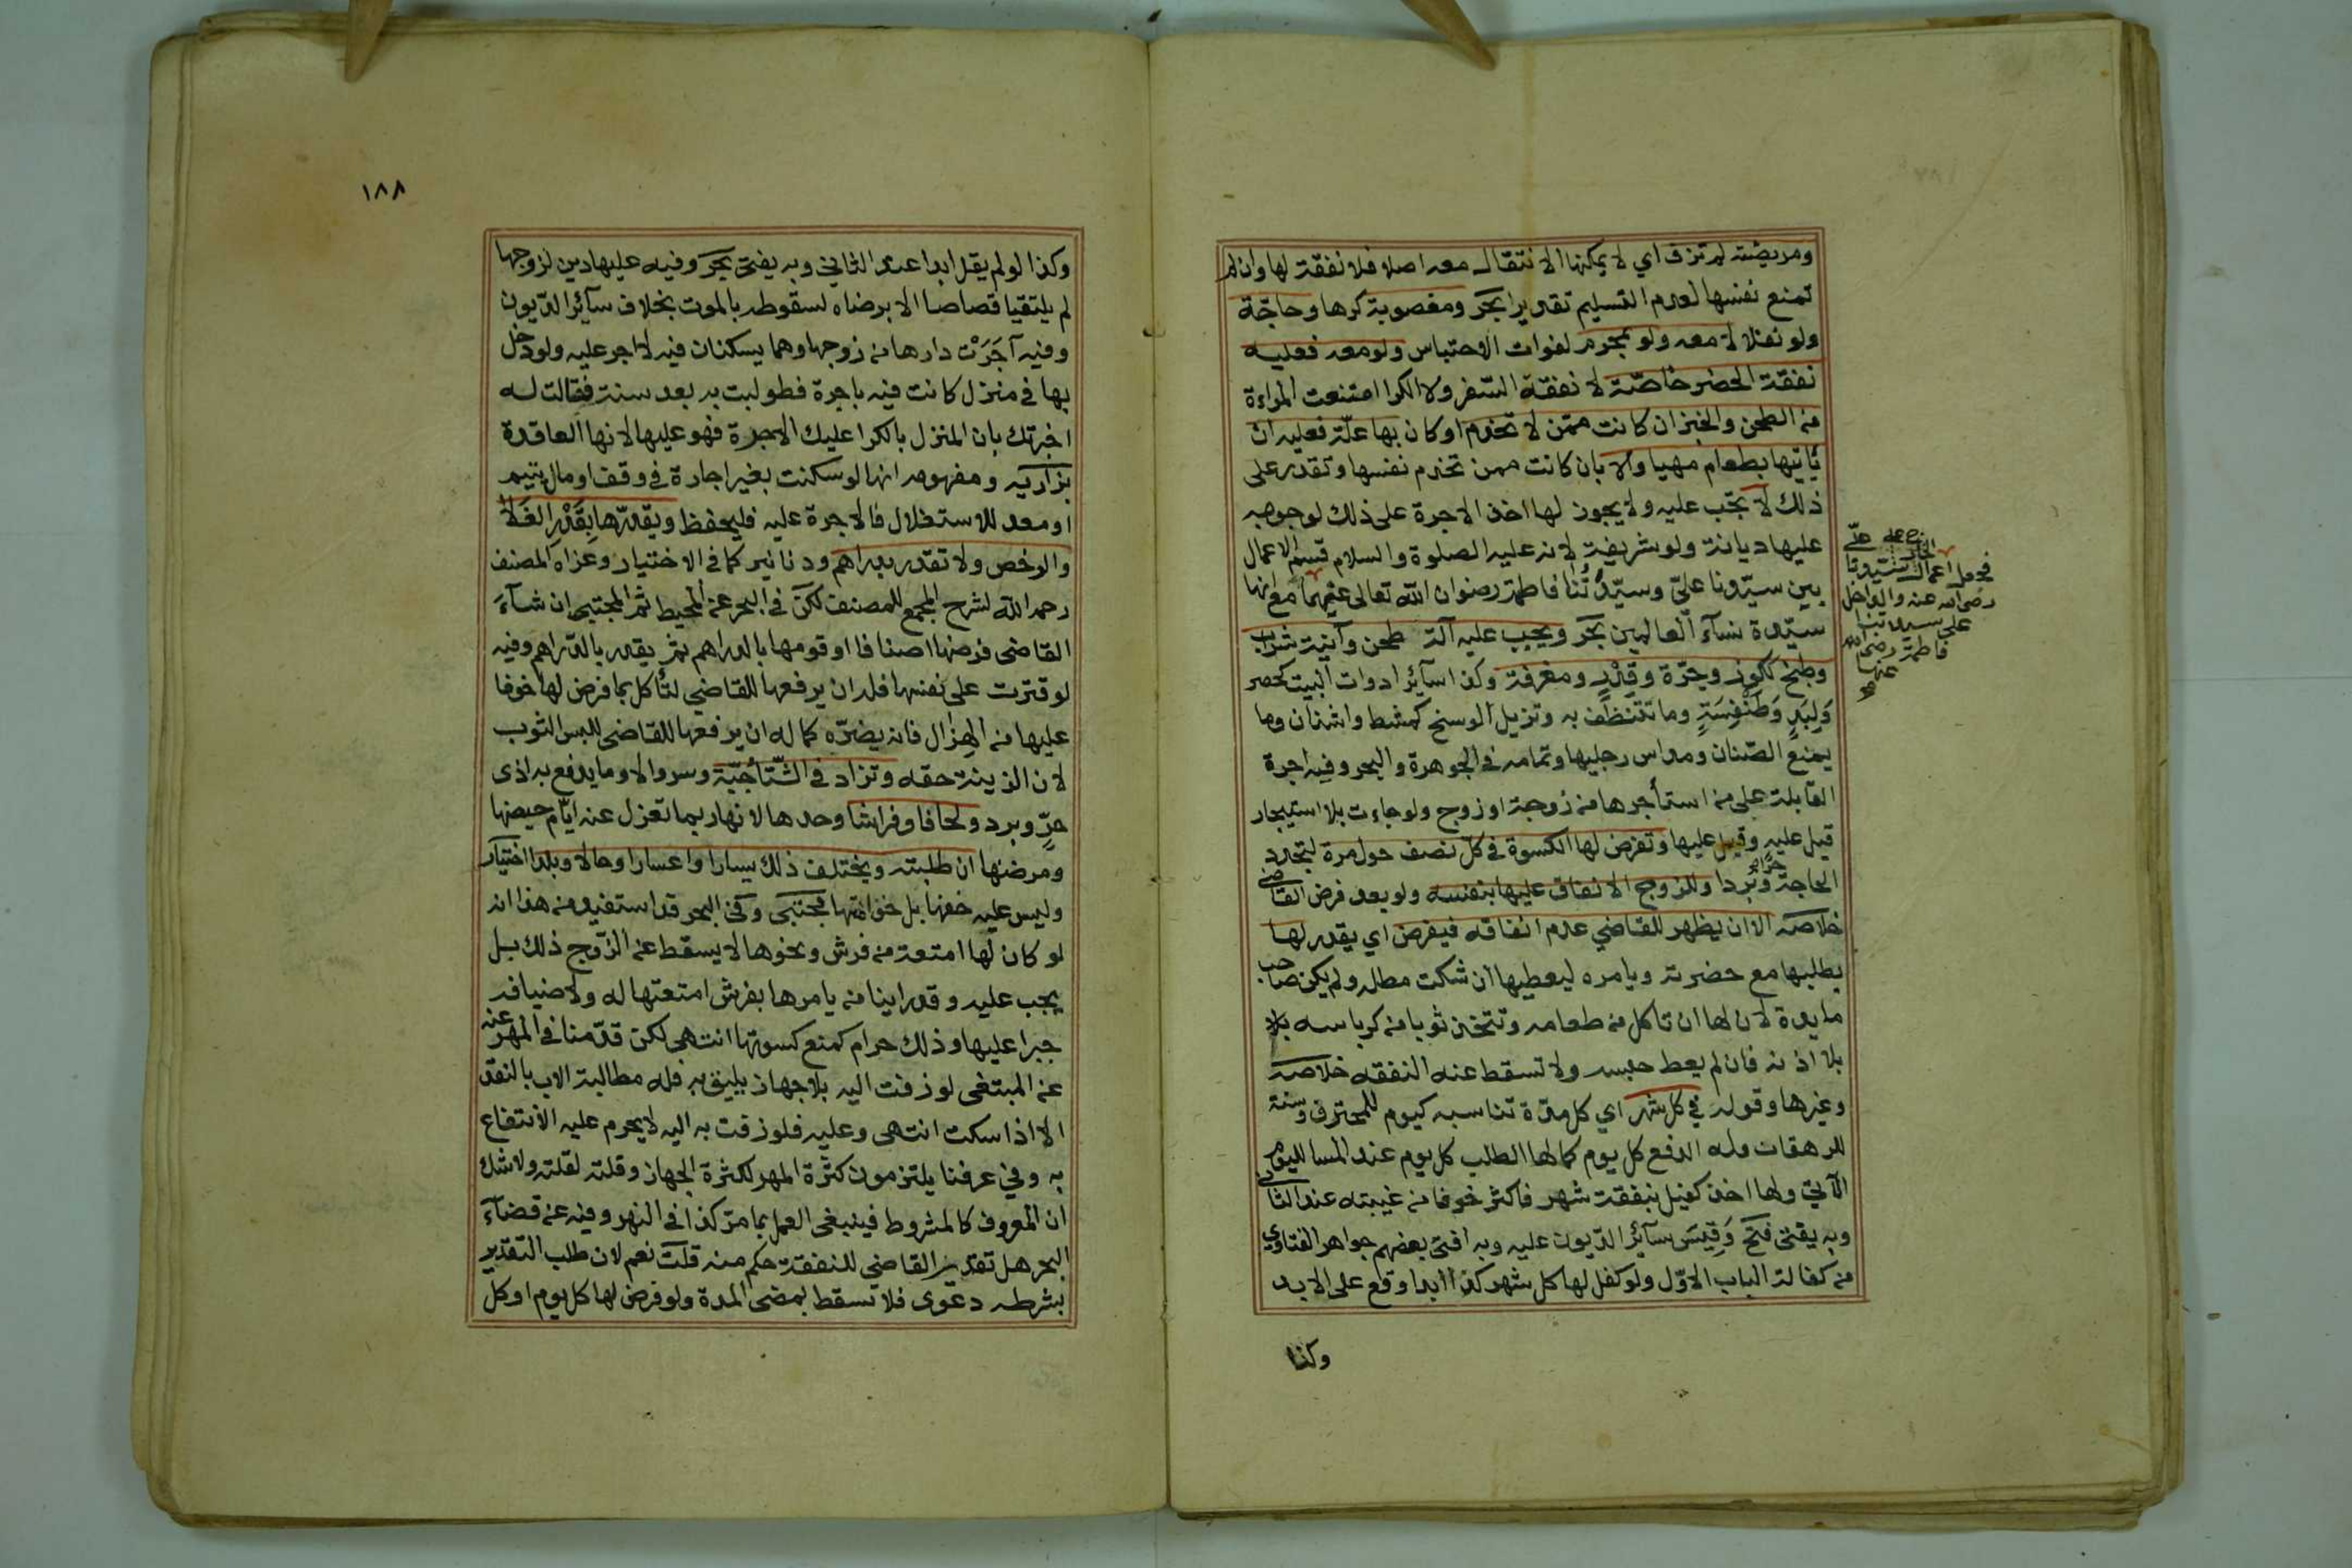 ومريضة لم تزف اي لا يمكنها الانتقال معه اصلا فلا نفقة لها وان لم
تمنع نفسها لعدم التسليم تقديرا بحر ومغصوبة كرها وحاجة
ولو نفلا لا معه ولو بمحرم لفوات الاحتباس ولو معه فعليه
نفقة الحضر خاصة لا نفقة السفر ولا الكرا امتنعت المراءة
من الطحن والخبز ان كانت ممن لا تخدم او كان بها علة فعليه ان
ياتيها بطعام مهيا والا بان كانت ممن تخدم نفسها وتقدر على
ذلك لا يجب عليه ولا يجوز لها اخذ الاجرة على ذلك لوجوبه
عليها ديانة ولو شريفة لانه عليه الصلوة والسلام قسم الاعمال
بين سيدنا علي وسيدتنا فاطمة رضوان الله تعالى عنهما مع انها
سيدة نسآء العالمين بحر ويجب عليه آلة طحن وآنية شراب
وطبخ ككوز وجرة وقدر ومغرفة وكذا سآئر ادوات البيت كحصر
ولبد وطنفسة وما تتنظف به وتزيل الوسخ كمشط واشنان وما
يمنع الصنان ومداس رجليها وتمامه في الجوهرة والبحر وفيه اجرة
القابلة على من استأجرها من زوجة او زوج ولو جاءت بلا استيجار
قيل عليه وقيل عليها وتفرض لها الكسوة في كل نصف حول مرة لتجدد
الحاجة حرا وبردا وللزوج الانفاق عليها بنفسه ولو بعد فرض القاضي
خلاصه الا ان يظهر للقاضي عدم انفاقه فيفرض اي يقدر لها
بطلبها مع حضرته ويامره ليعطيها ان شكت مطله ولم يكن صاحب
مايدة لان لها ان تاكل من طعامه وتتخذ ثوبا من كرباسه بلا
بلا اذنه فان لم يعط حبسه ولا تسقط عنه النفقه خلاصه
وغيرها وقوله في كل شهر اي كل مدة تناسبه كيوم للمحترف وسنة
للدهقان وله الدفع كل يوم كما لها الطلب كل يوم عند المسا لليوم
الآتي ولها اخذ كفيل بنفقة شهر فاكثر خوفا من غيبته عند الثاني
وبه يفتى فتح وقيس سآئر الديون عليه وبه افتى بعضهم جواهر الفتاوي
من كفالة الباب الاول ولو كفل لها كل شهر كذا ابدا وقع على الابد
وكذا
فجعل اعمال الخارج على علي
رضي الله عنه والداخل
على سيدتنا
فاطمة رضي الله
عنها
١٨٨
وكذا لو لم يقل ابدا عند الثاني وبه يفتى بحر وفيه عليها دين لزوجها
لم يلتقيا قصاصا الا برضاه لسقوطه بالموت بخلاف سآئر الديون
وفيه آجرت دارها من زوجها وهما يسكنان فيه لا اجر عليه ولو دخل
بها في منزل كانت فيه باجرة فطولبت به بعد سنة فقالت له
اخبرتك بان المنزل بالكرا عليك الاجرة فهو عليها لانها العاقدة
بزازيه ومفهومه انها لو سكنت بغير اجارة في وقف او مال يتيم
او معد للاستغلال فالاجرة عليه فليحفظ ويقدرها بقدر الغلا
والرخص ولا تقدر بدراهم ودنانير كما في الاختيار وعزاه المصنف
رحمه الله لشرح المجمع للمصنف لكن في البحر عن المحيط ثم المجتبى ان شآء
القاضي فرضها اصنافا او قومها بالدراهم ثم يقدر بالدراهم وفيه
لو قترت على نفسها فله ان يرفعها للقاضي لتأكل مما فرض لها خوفا
عليها من الهزال فانه يضره كما له ان يرفعها للقاضي للبس الثوب
لان الزينة حقه وتزاد في الشتا جبة وسروالا وما يدفع به اذى
حر وبرد ولحافا وفراشا وحدها لانها ربما تعزل عنه ايام حيضها
ومرضها ان طلبته ويختلف ذلك يسارا واعسارا وحالا وبلدا اختيار
وليس عليه خفها بل خف امتها مجتبى وفي البحر قد استفيد من هذا انه
لو كان لها امتعة من فرش ونحوها لا يسقط عن الزوج ذلك بل
يجب عليه وقد راينا من يامرها بفرش امتعتها له ولاضيافه
جبرا عليها وذلك حرام كمنع كسوتها انتهى لكن قدمنا في المهر عنه
عن المبتغى لو زفت اليه بلا جهاز يليق به فله مطالبة الاب بالنقد
الا اذا سكت انتهى وعليه فلو زفت به اليه لا يحرم عليه الانتفاع
به وفي عرفنا يلتزمون كثرة المهر لكثرة الجهاز وقلته لقلته ولا شك
ان المعروف كالمشروط فينبغي العمل بما مر كذا في النهر وفيه عن قضآء
البحر هل تقدير القاضي للنفقة حكم منه قلت نعم لان طلب التقدير
بشرطه دعوى فلا تسقط بمضي المدة ولو فرض لها كل يوم او كل